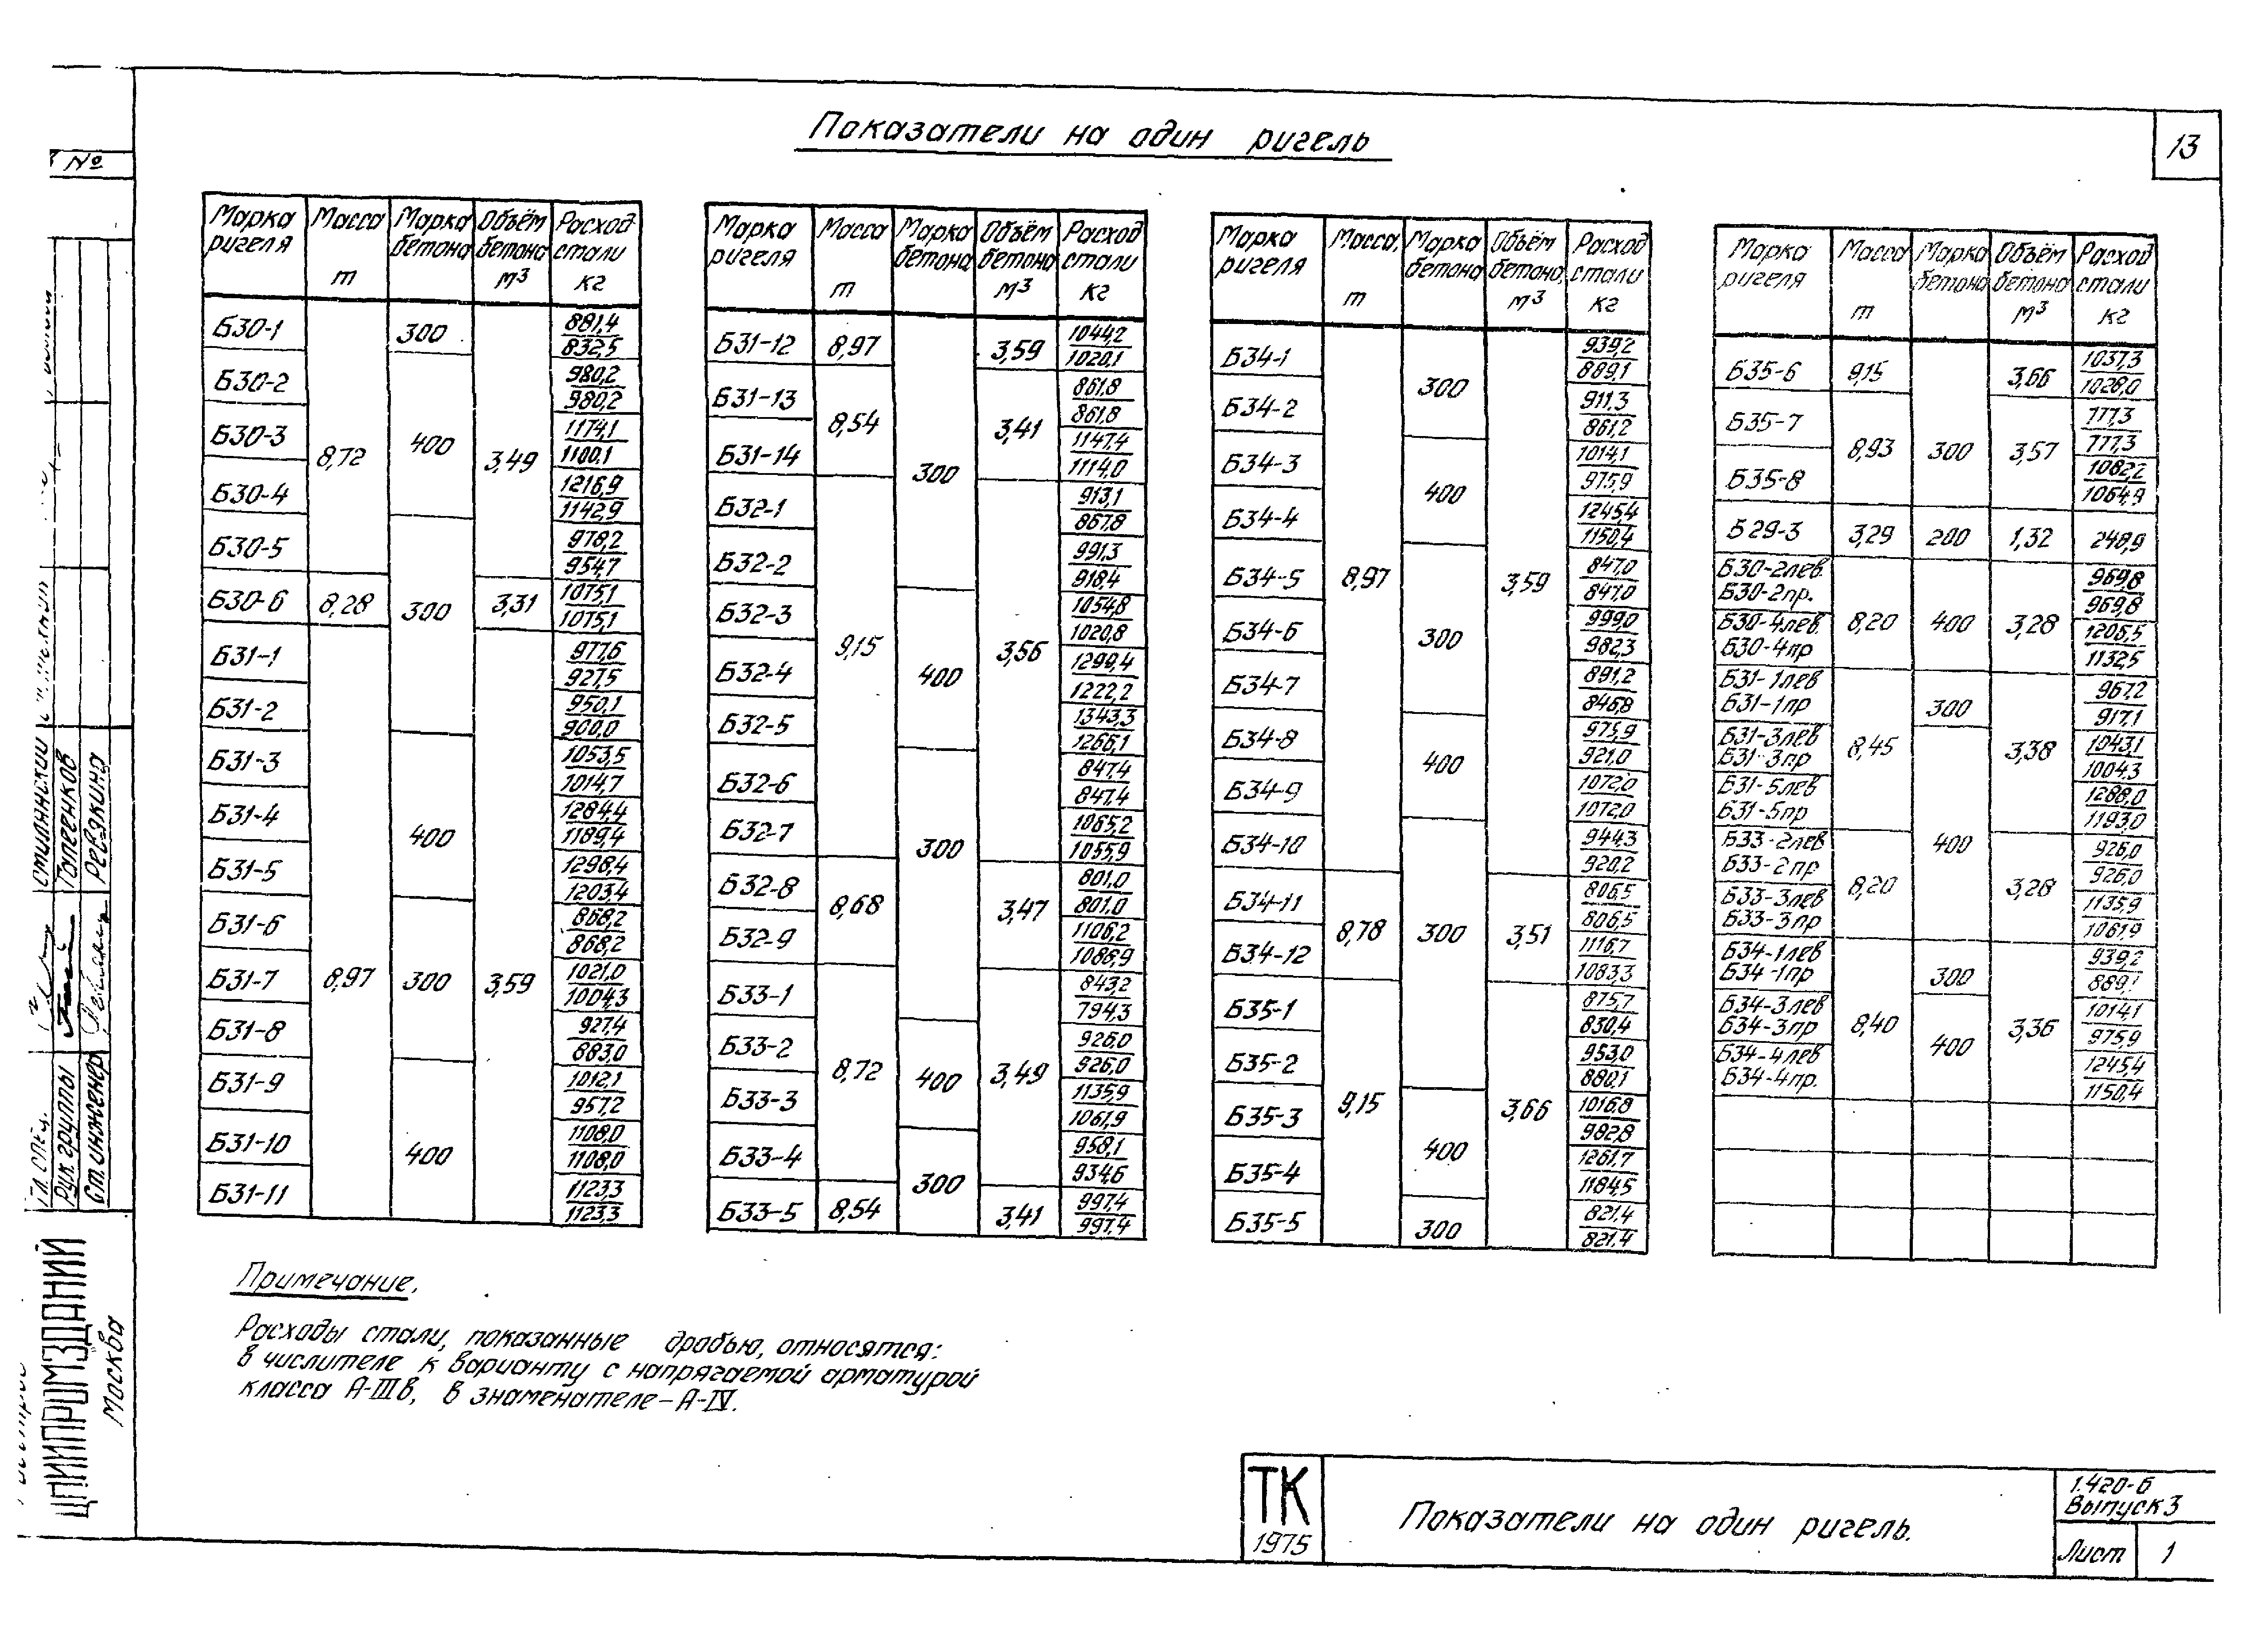 Показатели на один ригель
13
№
Марка ригеля | Масса т | Марка бетона | Объём бетона м³ | Расход стали кг
Б30-1 | 8,72 | 300 | 3,49 | 881,4 / 832,5
Б30-2 | 400 | 980,2 / 980,2
Б30-3 | 1174,1 / 1100,1
Б30-4 | 1216,9 / 1142,9
Б30-5 | 300 | 978,2 / 954,7
Б30-6 | 8,28 | 3,31 | 1075,1 / 1075,1
Б31-1 | 8,97 | 3,59 | 977,6 / 927,5
Б31-2 | 950,1 / 900,0
Б31-3 | 400 | 1053,5 / 1014,7
Б31-4 | 1284,4 / 1189,4
Б31-5 | 1298,4 / 1203,4
Б31-6 | 300 | 868,2 / 868,2
Б31-7 | 1021,0 / 1004,3
Б31-8 | 927,4 / 883,0
Б31-9 | 400 | 1012,1 / 957,2
Б31-10 | 1108,0 / 1108,0
Б31-11 | 1123,3 / 1123,3
Марка ригеля | Масса т | Марка бетона | Объём бетона м³ | Расход стали кг
Б31-12 | 8,97 | 300 | 3,59 | 1044,2 / 1020,1
Б31-13 | 8,54 | 3,41 | 861,8 / 861,8
Б31-14 | 1147,4 / 1114,0
Б32-1 | 9,15 | 3,66 | 913,1 / 867,8
Б32-2 | 991,3 / 918,4
Б32-3 | 400 | 1054,8 / 1020,8
Б32-4 | 1299,4 / 1222,2
Б32-5 | 1343,3 / 1266,1
Б32-6 | 300 | 847,4 / 847,4
Б32-7 | 1065,2 / 1055,9
Б32-8 | 8,68 | 3,47 | 801,0 / 801,0
Б32-9 | 1106,2 / 1086,9
Б33-1 | 8,72 | 3,49 | 843,2 / 794,3
Б33-2 | 400 | 926,0 / 926,0
Б33-3 | 1135,9 / 1061,9
Б33-4 | 300 | 958,1 / 934,6
Б33-5 | 8,54 | 3,41 | 997,4 / 997,4
Марка ригеля | Масса, т | Марка бетона | Объём бетона, м³ | Расход стали кг
Б34-1 | 8,97 | 300 | 3,59 | 939,2 / 889,1
Б34-2 | 911,3 / 861,2
Б34-3 | 400 | 1014,1 / 975,9
Б34-4 | 1245,4 / 1150,4
Б34-5 | 300 | 847,0 / 847,0
Б34-6 | 999,0 / 982,3
Б34-7 | 891,2 / 846,8
Б34-8 | 400 | 975,9 / 921,0
Б34-9 | 1072,0 / 1072,0
Б34-10 | 300 | 944,3 / 920,2
Б34-11 | 8,78 | 3,51 | 806,5 / 806,5
Б34-12 | 1116,7 / 1083,3
Б35-1 | 9,15 | 3,66 | 875,7 / 830,4
Б35-2 | 953,0 / 880,1
Б35-3 | 400 | 1016,8 / 982,8
Б35-4 | 1261,7 / 1184,5
Б35-5 | 300 | 821,4 / 821,4
Марка ригеля | Масса т | Марка бетона | Объём бетона м³ | Расход стали кг
Б35-6 | 9,15 | 300 | 3,66 | 1037,3 / 1028,0
Б35-7 | 8,93 | 3,57 | 777,3 / 777,3
Б35-8 | 1082,2 / 1064,9
Б29-3 | 3,29 | 200 | 1,32 | 248,9
Б30-2лев. Б30-2пр. | 8,20 | 400 | 3,28 | 969,8 / 969,8
Б30-4лев. Б30-4пр | 1206,5 / 1132,5
Б31-1лев Б31-1пр | 8,45 | 300 | 3,38 | 967,2 / 917,1
Б31-3лев Б31-3пр | 400 | 1043,1 / 1004,3
Б31-5лев Б31-5пр | 1288,0 / 1193,0
Б33-2лев Б33-2пр | 8,20 | 3,28 | 926,0 / 926,0
Б33-3лев Б33-3пр | 1135,9 / 1061,9
Б34-1лев Б34-1пр | 8,40 | 300 | 3,36 | 939,2 / 889,1
Б34-3лев Б34-3пр | 400 | 1014,1 / 975,9
Б34-4лев Б34-4пр. | 1245,4 / 1150,4
Примечание.
Расходы стали, показанные дробью, относятся:
в числителе к варианту с напрягаемой арматурой
класса А-IIIв, в знаменателе-А-IV.
Рук. группы Топеенков
Ст. инженер Ревякина
ЦНИИПРОМЗДАНИЙ
Москва
ТК
1975
Показатели на один ригель.
1.420-6
Выпуск 3
Лист 1